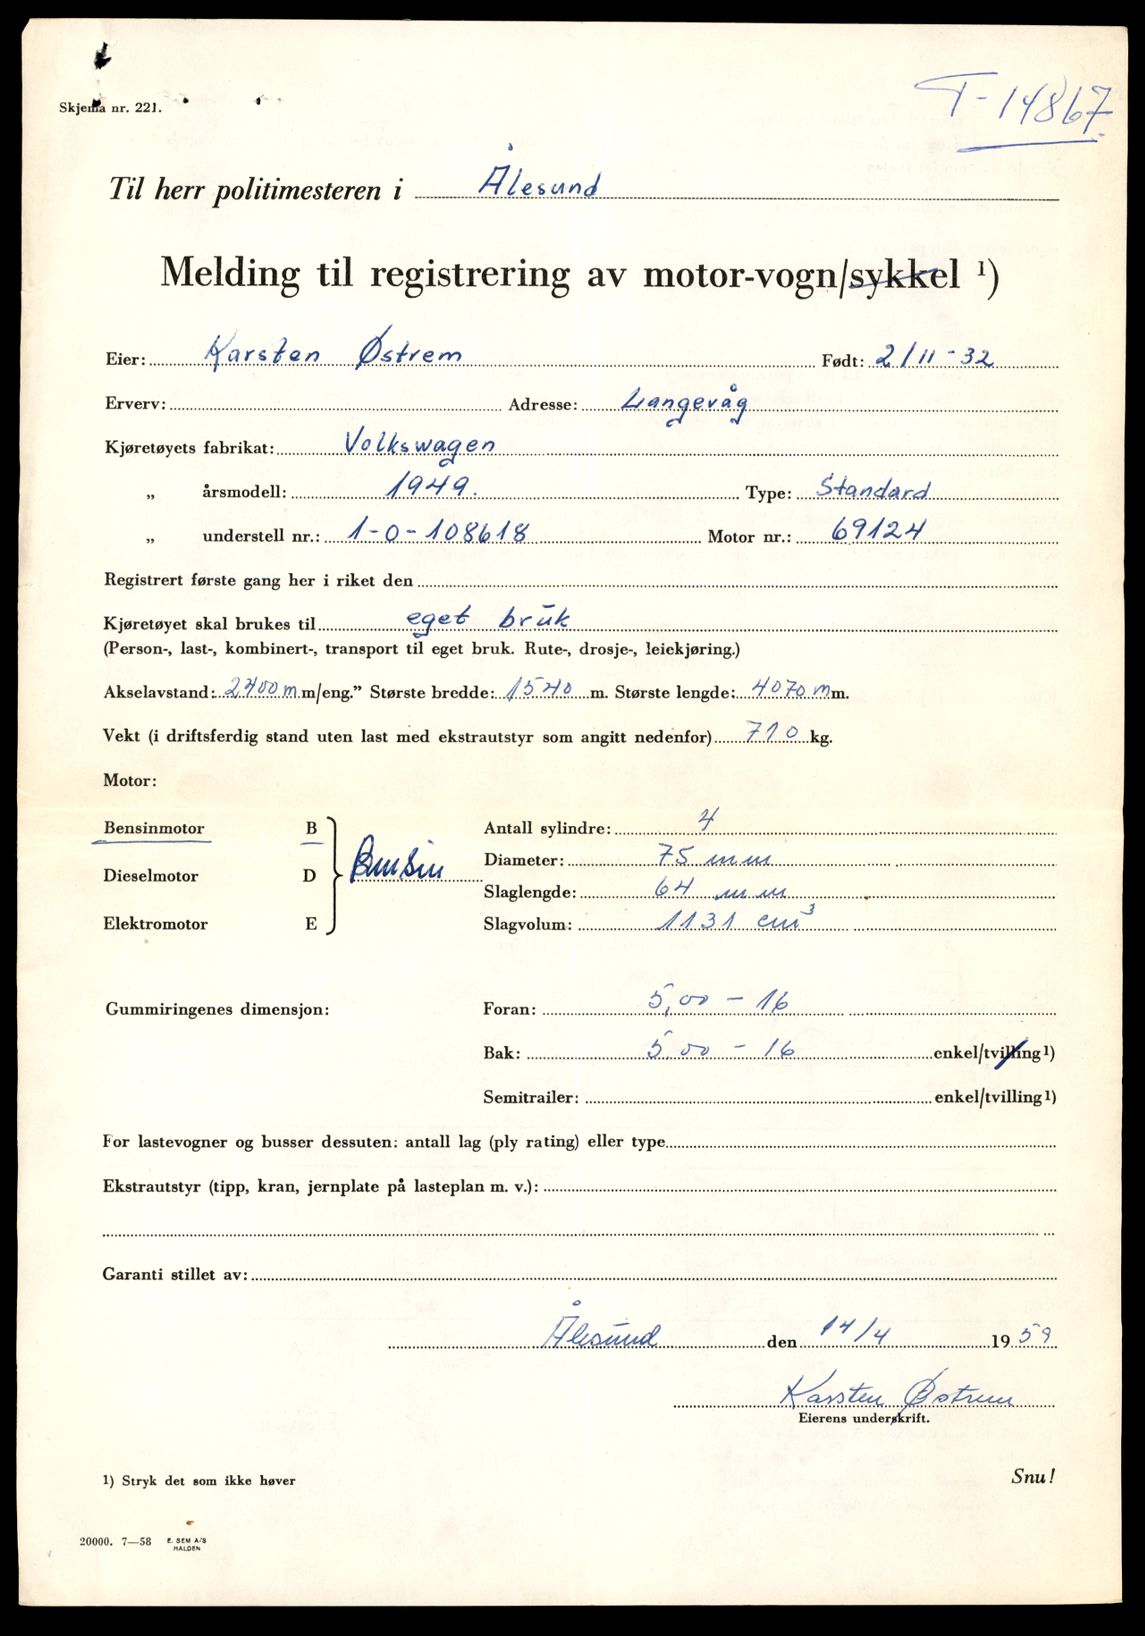 Skjema nr. 221.
T-14867
Til herr politimesteren i Ålesund
Melding til registrering av motor-vogn/sykkel ¹)
Eier: Karsten Østrem Født: 2/11-32
Erverv: Adresse: Langevåg
Kjøretøyets fabrikat: Volkswagen
„ årsmodell: 1949. Type: Standard
„ understell nr.: 1-0-108618 Motor nr.: 69124
Registrert første gang her i riket den
Kjøretøyet skal brukes til eget bruk
(Person-, last-, kombinert-, transport til eget bruk. Rute-, drosje-, leiekjøring.)
Akselavstand: 2400 m m/eng.” Største bredde: 1540 m. Største lengde: 4070 m m.
Vekt (i driftsferdig stand uten last med ekstrautstyr som angitt nedenfor) 710 kg.
Motor:
Bensinmotor B Antall sylindre: 4
Bensin Diameter: 75 mm
Dieselmotor D
Slaglengde: 64 mm
Elektromotor E Slagvolum: 1131 cm³
Gummiringenes dimensjon: Foran: 5,00 - 16
Bak: 5 00 - 16 enkel/tvilling ¹)
Semitrailer: enkel/tvilling ¹)
For lastevogner og busser dessuten: antall lag (ply rating) eller type
Ekstrautstyr (tipp, kran, jernplate på lasteplan m. v.):
Garanti stillet av:
Ålesund den 14/4 19 59
Karsten Østrem
Eierens underskrift.
¹) Stryk det som ikke høver
Snu!
20000. 7—58 E. SEM A/S
HALDEN